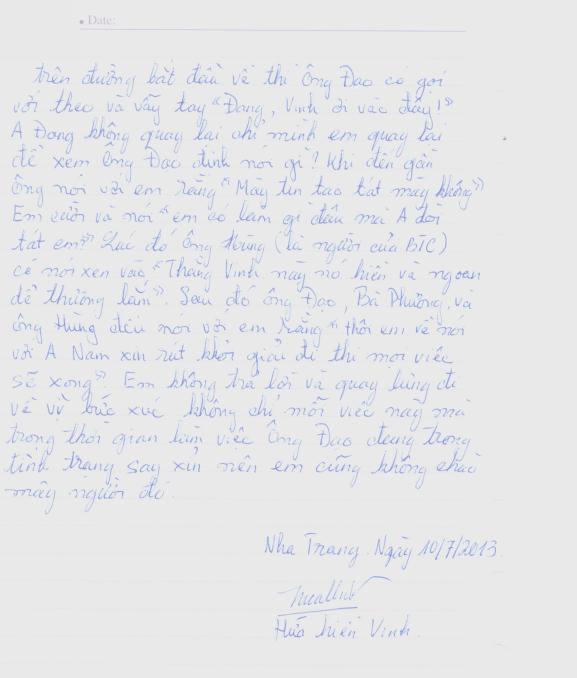 Date:
trên đường bắt đầu về thì Ông Đạo có gọi
với theo và vẫy tay "Đang, Vinh ơi vào đây!"
A Đang không quay lại chỉ mình em quay lại
để xem Ông Đạo định nói gì? Khi đến gần
Ông nói với em rằng "Mày tin tao tát mày không"
Em cười và nói "em có làm gì đâu mà A đòi
tát em" Lúc đó Ông Hùng (là người của BTC)
có nói xen vào "Thằng Vinh này nó hiền và ngoan
dễ thương lắm". Sau đó ông Đạo, Bà Phường, và
ông Hùng đều nói với em rằng "thôi em về nói
với A Nam xin rút khỏi giải đi thì mọi việc
sẽ xong". Em không trả lời và quay lưng đi
về vì bức xúc không chỉ mỗi việc này mà
trong thời gian làm việc Ông Đạo đang trong
tình trạng say xỉn nên em cũng không chào
mấy người đó.
Nha Trang. Ngày 10/7/2013
Hứa hiền Vinh.